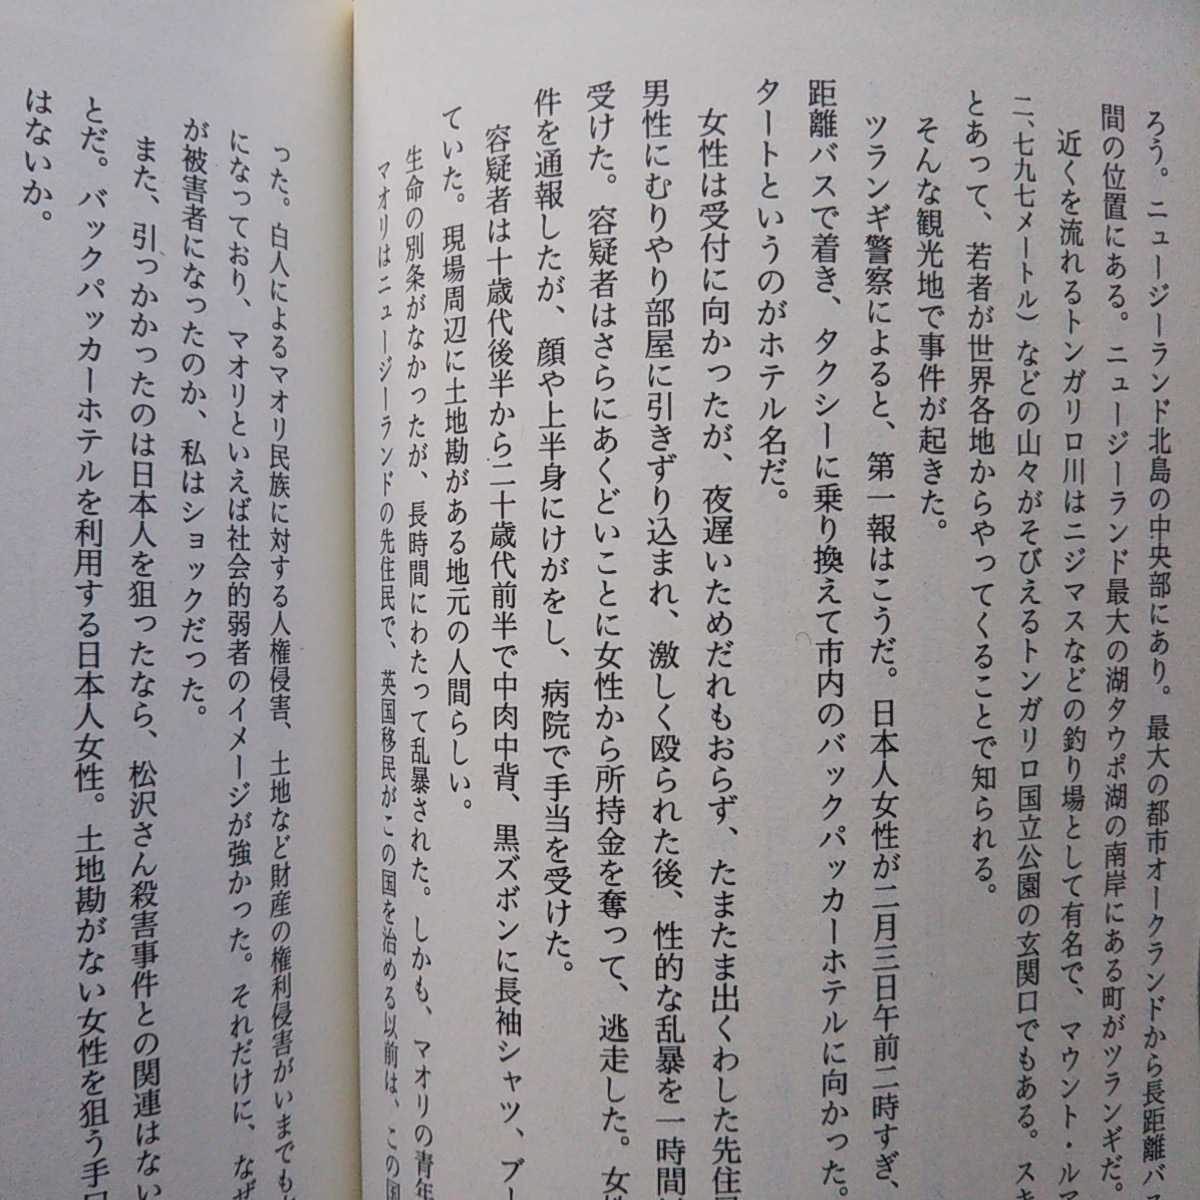 ろう。ニュージーランド北島の中央部にあり。最大の都市オークランドから長距離バ
間の位置にある。ニュージーランド最大の湖タウポ湖の南岸にある町がツランギだ。
近くを流れるトンガリロ川はニジマスなどの釣り場として有名で、マウント・ル
二、七九七メートル）などの山々がそびえるトンガリロ国立公園の玄関口でもある。スキ
とあって、若者が世界各地からやってくることで知られる。
そんな観光地で事件が起きた。
ツランギ警察によると、第一報はこうだ。日本人女性が二月三日午前二時すぎ、
距離バスで着き、タクシーに乗り換えて市内のバックパッカーホテルに向かった。
タートというのがホテル名だ。
女性は受付に向かったが、夜遅いためだれもおらず、たまたま出くわした先住
男性にむりやり部屋に引きずり込まれ、激しく殴られた後、性的な乱暴を一時間
受けた。容疑者はさらにあくどいことに女性から所持金を奪って、逃走した。女
件を通報したが、顔や上半身にけがをし、病院で手当を受けた。
容疑者は十歳代後半から二十歳代前半で中肉中背、黒ズボンに長袖シャツ、ブー
ていた。現場周辺に土地勘がある地元の人間らしい。
生命の別条がなかったが、長時間にわたって乱暴された。しかも、マオリの青年
マオリはニュージーランドの先住民で、英国移民がこの国を治める以前は、この国
った。白人によるマオリ民族に対する人権侵害、土地など財産の権利侵害がいまでも
になっており、マオリといえば社会的弱者のイメージが強かった。それだけに、なぜ
が被害者になったのか、私はショックだった。
また、引っかかったのは日本人を狙ったなら、松沢さん殺害事件との関連はない
とだ。バックパッカーホテルを利用する日本人女性。土地勘がない女性を狙う手口
はないか。